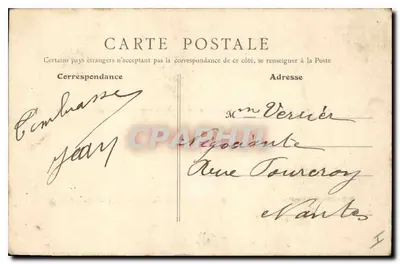 CARTE POSTALE
Certains pays étrangers n'acceptant pas la correspondance de ce côté, se renseigner à la Poste
Correspondance
Adresse
T'embrasse
Jean
Mme Verrier
Négociante
Rue Fourcroy
Nantes